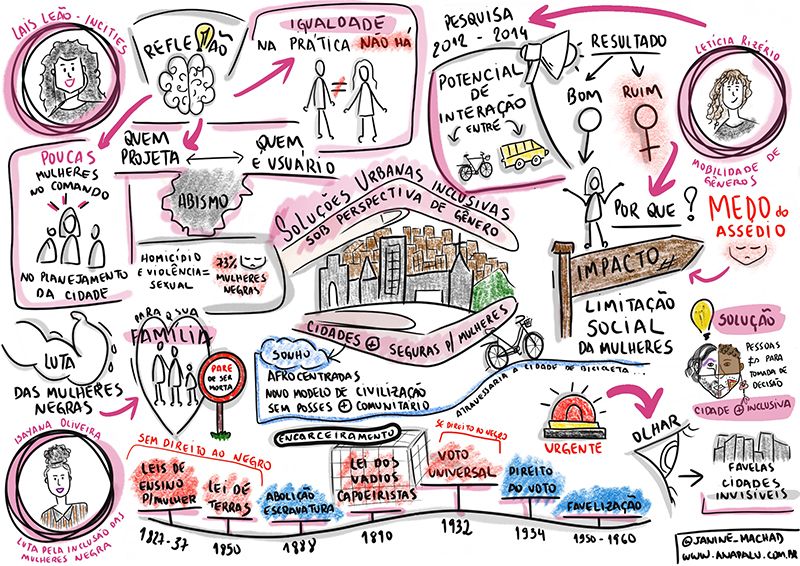 LAIS LEÃO - INCITIES
REFLEXÃO
IGUALDADE
NA PRÁTICA NÃO HÁ
≠
PESQUISA
2012 - 2014
POTENCIAL
DE
INTERAÇÃO
ENTRE
RESULTADO
BOM
RUIM
LETÍCIA RIZÉRIO
MOBILIDADE DE
GÊNEROS
POUCAS
MULHERES
NO COMANDO
NO PLANEJAMENTO
DA CIDADE
QUEM
PROJETA
QUEM
É USUÁRIO
ABISMO
HOMICÍDIO
E VIOLÊNCIA =
SEXUAL
73%
MULHERES
NEGRAS
SOLUÇÕES URBANAS INCLUSIVAS
SOB PERSPECTIVA DE GÊNERO
CIDADES + SEGURAS P/ MULHERES
POR QUE ?
MEDO do
ASSÉDIO
IMPACTO
LIMITAÇÃO
SOCIAL
DA MULHERES
SOLUÇÃO
PESSOAS
≠s PARA
TOMADA DE
DECISÃO
CIDADE + INCLUSIVA
LUTA
DAS MULHERES
NEGRAS
PARA A SUA
FAMÍLIA
PARE
DE SER
MORTA
SONHO
AFROCENTRADAS
NOVO MODELO DE CIVILIZAÇÃO
SEM POSSES + COMUNITÁRIO
ATRAVESSARIA A CIDADE DE BICICLETA...
URGENTE
OLHAR
FAVELAS
CIDADES
INVISÍVEIS
DAYANA OLIVEIRA
LUTA PELA INCLUSÃO DAS
MULHERES NEGRA
SEM DIREITO AO NEGRO
ENCARCEIRAMENTO
SE DIREITO AO NEGRO
LEIS DE
ENSINO
P/MULHER
LEI DE
TERRAS
ABOLIÇÃO
ESCRAVATURA
LEI DOS
VADIOS
CAPOEIRISTAS
VOTO
UNIVERSAL
DIREITO
AO VOTO
FAVELIZAÇÃO
1827-37
1850
1888
1890
1932
1934
1950 - 1960
@JANINE_MACHAD
WWW.ANAPALU.COM.BR